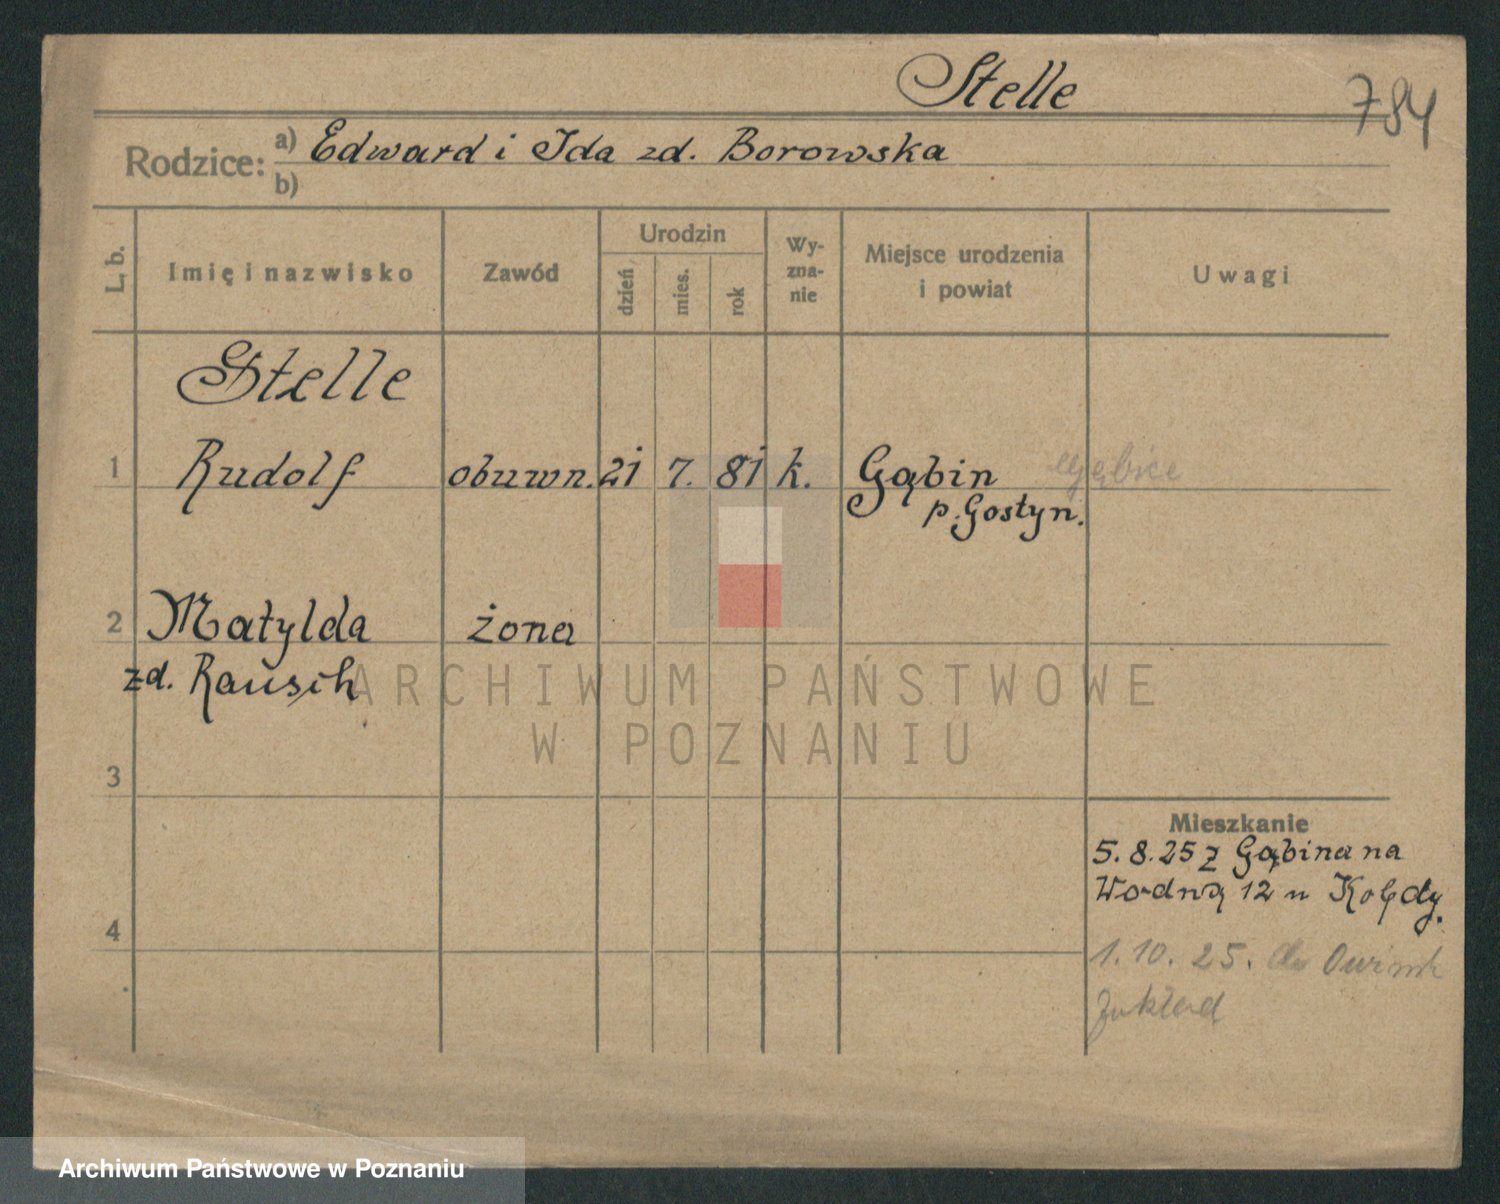 Stelle
784
Rodzice: a) Edward i Ida zd. Borowska
b)
L. b.
Imię i nazwisko
Zawód
Urodzin
dzień
mies.
rok
Wy-
zna-
nie
Miejsce urodzenia
i powiat
Uwagi
Stelle
1 Rudolf obuwn. 21 7. 81 k. Gąbin Gąbice
p. Gostyn.
2 Matylda żona
zd. Rausch
ARCHIWUM PAŃSTWOWE
W POZNANIU
3
Mieszkanie
5.8.25 z Gąbina na
Wodną 12 u Kolędy.
4
1.10.25. do Owińsk
Zakład
Archiwum Państwowe w Poznaniu